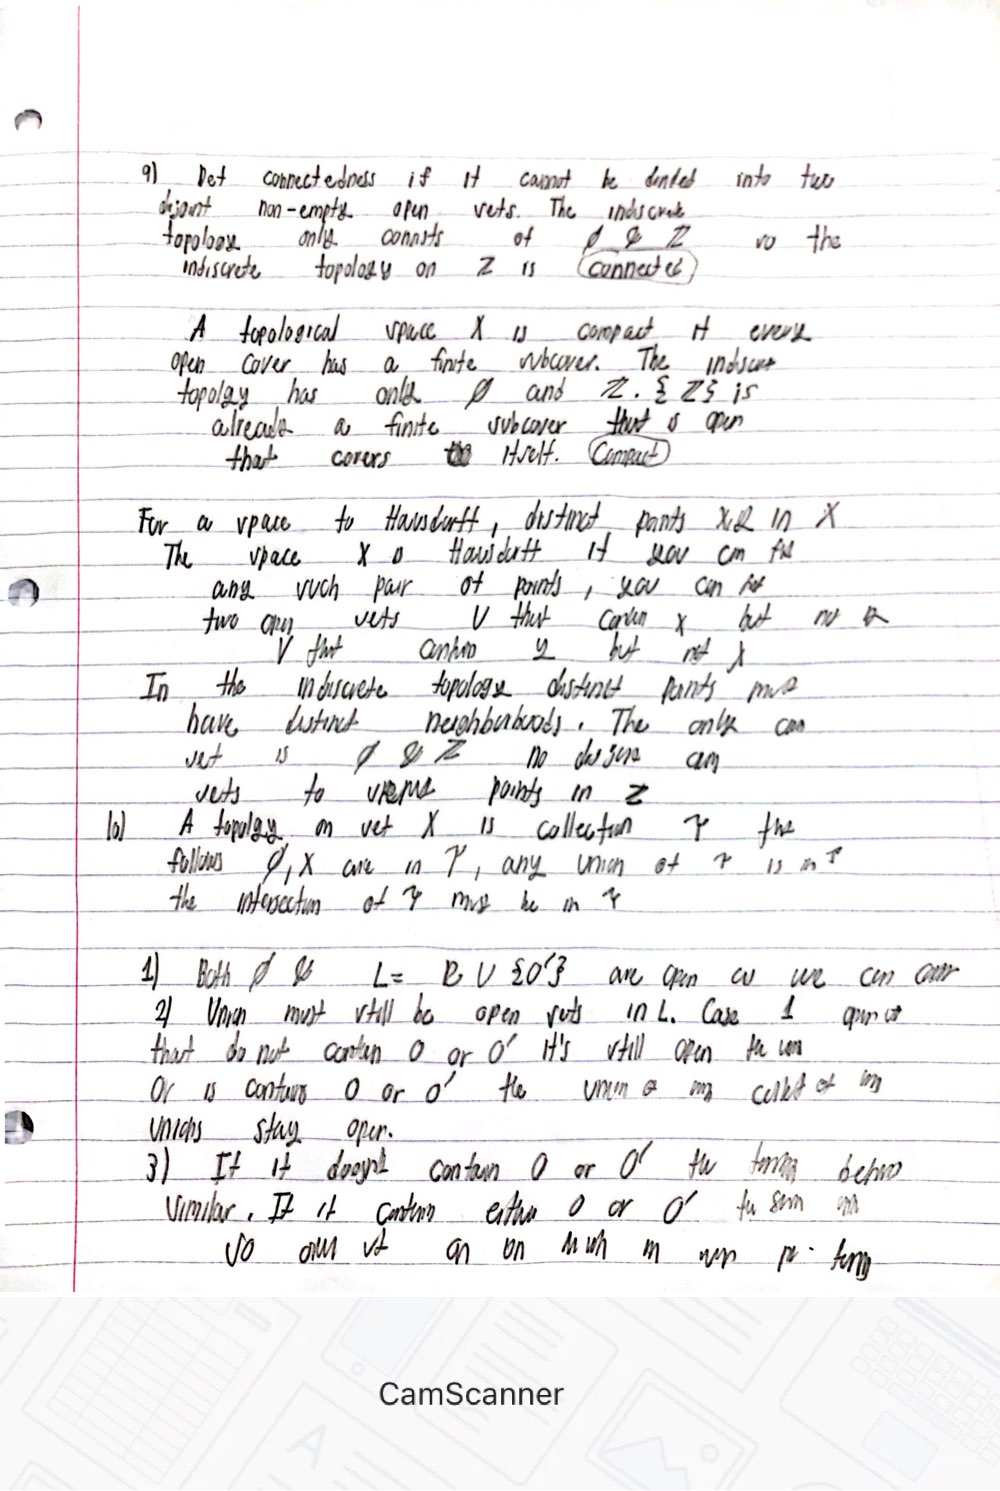 9) Def connectedness if it cannot be divided into two
disjoint non-empty open sets. The indiscrete
topology only consists of ∅ & Z so the
indiscrete topology on Z is connected
A topological space X is compact if every
open cover has a finite subcover. The indiscrete
topolgy has only ∅ and Z. {Z} is
already a finite subcover that is open
that covers itself. Compact
For a space to Hausdorff, distinct points x,y in X
The space X is Hausdorff if you can for
any such pair of points, you can for
two open sets U that contain x but not y
V that contain y but not x
In the indiscrete topology distinct points must
have distinct neighborhoods. The only open
set is ∅ & Z no disjoint open
sets to separate points in Z
10) A topolgy on set X is collection τ the
follows ∅, X are in τ, any union of τ is in τ
the intersection of τ must be in τ
1) Both ∅ & L = R ∪ {0'} are open as we can cover
2) Union must still be open sets in L. Case 1 open set
that do not contain 0 or 0' it's still open the
Or is contains 0 or 0' the union of any collect of any
unions stay open.
3) If it doesn't contain 0 or 0' the
similar. If it contains either 0 or 0' the same
so